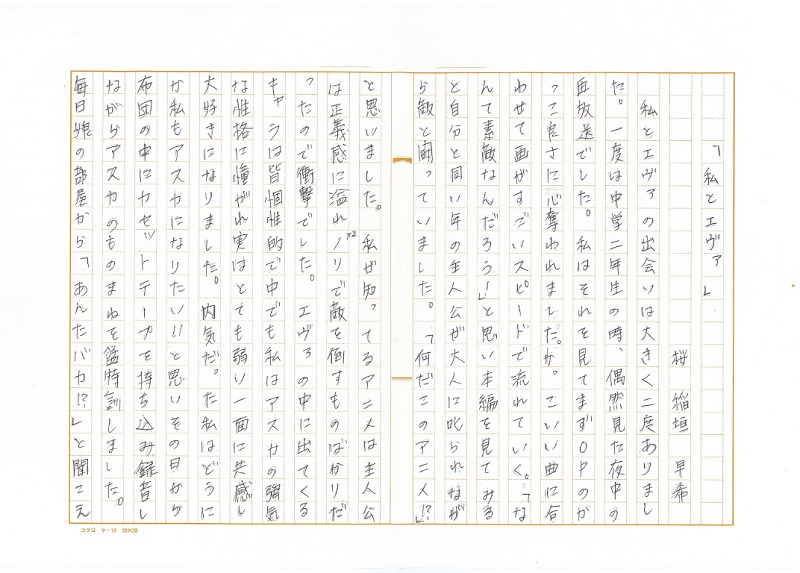 「私とエヴァ」
桜 稲垣 早希
私とエヴァの出会いは大きく二度ありまし
た。一度は中学二年生の時、偶然見た夜中の
再放送でした。私はそれを見てまずOPのか
っこ良さに心奪われました。か。こいい曲に合
わせて画がすごいスピードで流れていく。「な
んて素敵なんだろう!」と思い本編を見てみる
と自分と同い年の主人公が大人に叱られなが
ら敵と闘っていました。「何だこのアニメ!?」
と思いました。私が知ってるアニメは主人公
は正義感に溢れノリ×2で敵を倒すものばかりだ
ったので衝撃でした。エヴァの中に出てくる
キャラは皆個性的で中でも私はアスカの強気
な性格に憧がれ実はとても弱い一面に共感し
大好きになりました。内気だ。た私はどうに
か私もアスカになりたい!!と思いその日から
布団の中にカセットテープを持ち込み録音し
ながらアスカのものまねを猛特訓しました。
毎日娘の部屋から「あんたバカ!?」と聞こえ
コクヨ ケ-10 20×20